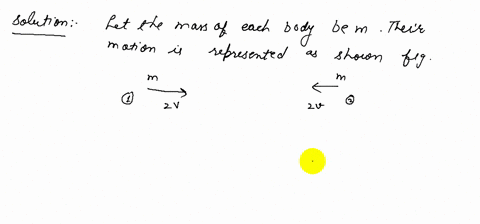 Solution:- Let the mass of each body be m. Their
motion is represented as shown fig.
m m
① 2V 2v ②